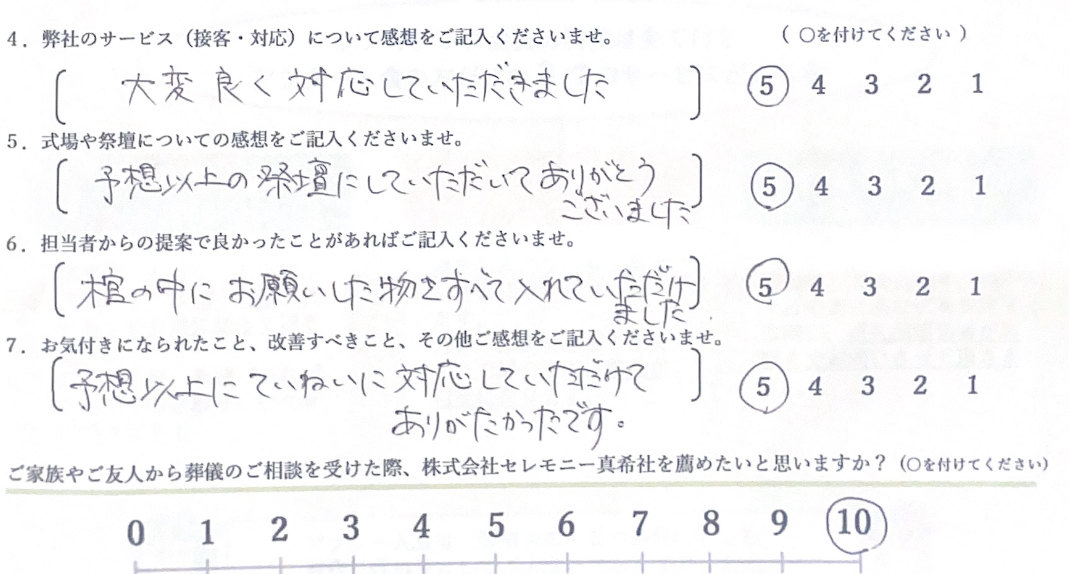 4．弊社のサービス（接客・対応）について感想をご記入くださいませ。 （ ○を付けてください ）
大変良く対応していただきました 5 4 3 2 1
5．式場や祭壇についての感想をご記入くださいませ。
予想以上の祭壇にしていただいてありがとう 5 4 3 2 1
ございました
6．担当者からの提案で良かったことがあればご記入くださいませ。
棺の中にお願いした物をすべて入れていただけ 5 4 3 2 1
ました.
7．お気付きになられたこと、改善すべきこと、その他ご感想をご記入くださいませ。
予想以上にていねいに対応していただけて 5 4 3 2 1
ありがたかったです。
ご家族やご友人から葬儀のご相談を受けた際、株式会社セレモニー真希社を薦めたいと思いますか？（○を付けてください）
0 1 2 3 4 5 6 7 8 9 10